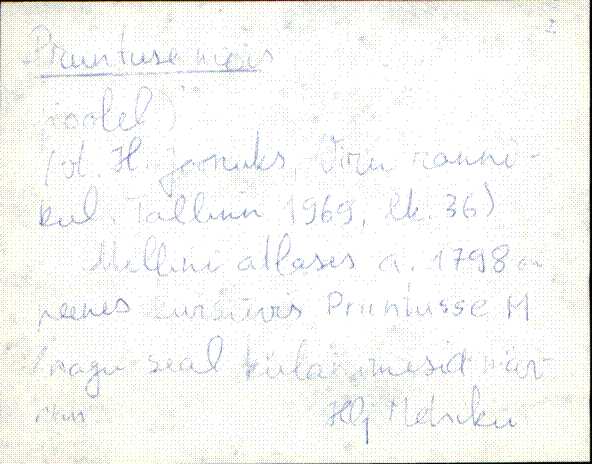 2
Pruntuse mõis
(vt. H. Joonuks, Viru ranni-
kul. Tallinn 1969, lk. 36)
Mellini atlases a. 1798 on
peenes kursiivis Pruntusse M
(nagu seal külanimesid